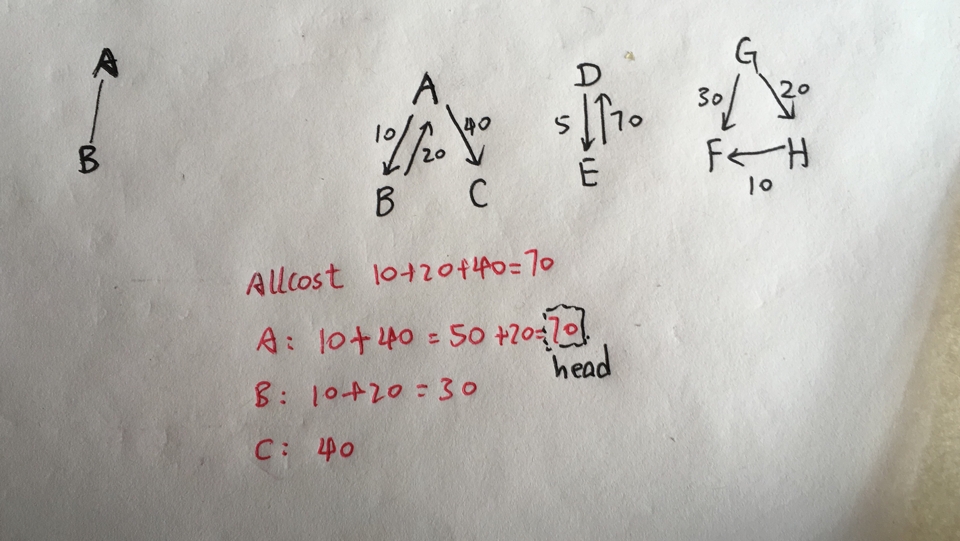 A
B
A
10
20
40
B
C
D
5
70
E
G
30
20
F
H
10
Allcost 10+20+40=70
A: 10+40=50+20=70
head
B: 10+20=30
C: 40